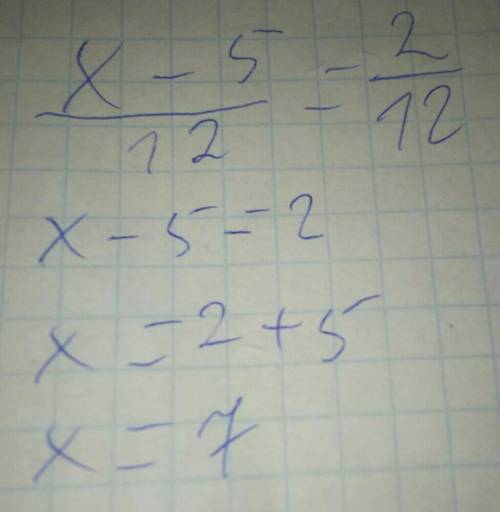 x - 5 / 12 = 2 / 12
x - 5 = 2
x = 2 + 5
x = 7